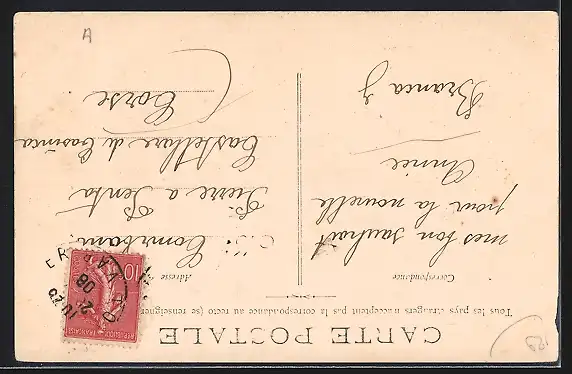 CARTE POSTALE
Tous les pays étrangers n'acceptent pas la correspondance au recto (se renseigner
Correspondance
mes bon souhait
pour la nouvelle
Année
Branca J
Adresse
Pierre a Penta
Castellare di Casinca
Corse
10
REPUBLIQUE FRANÇAISE
08
A